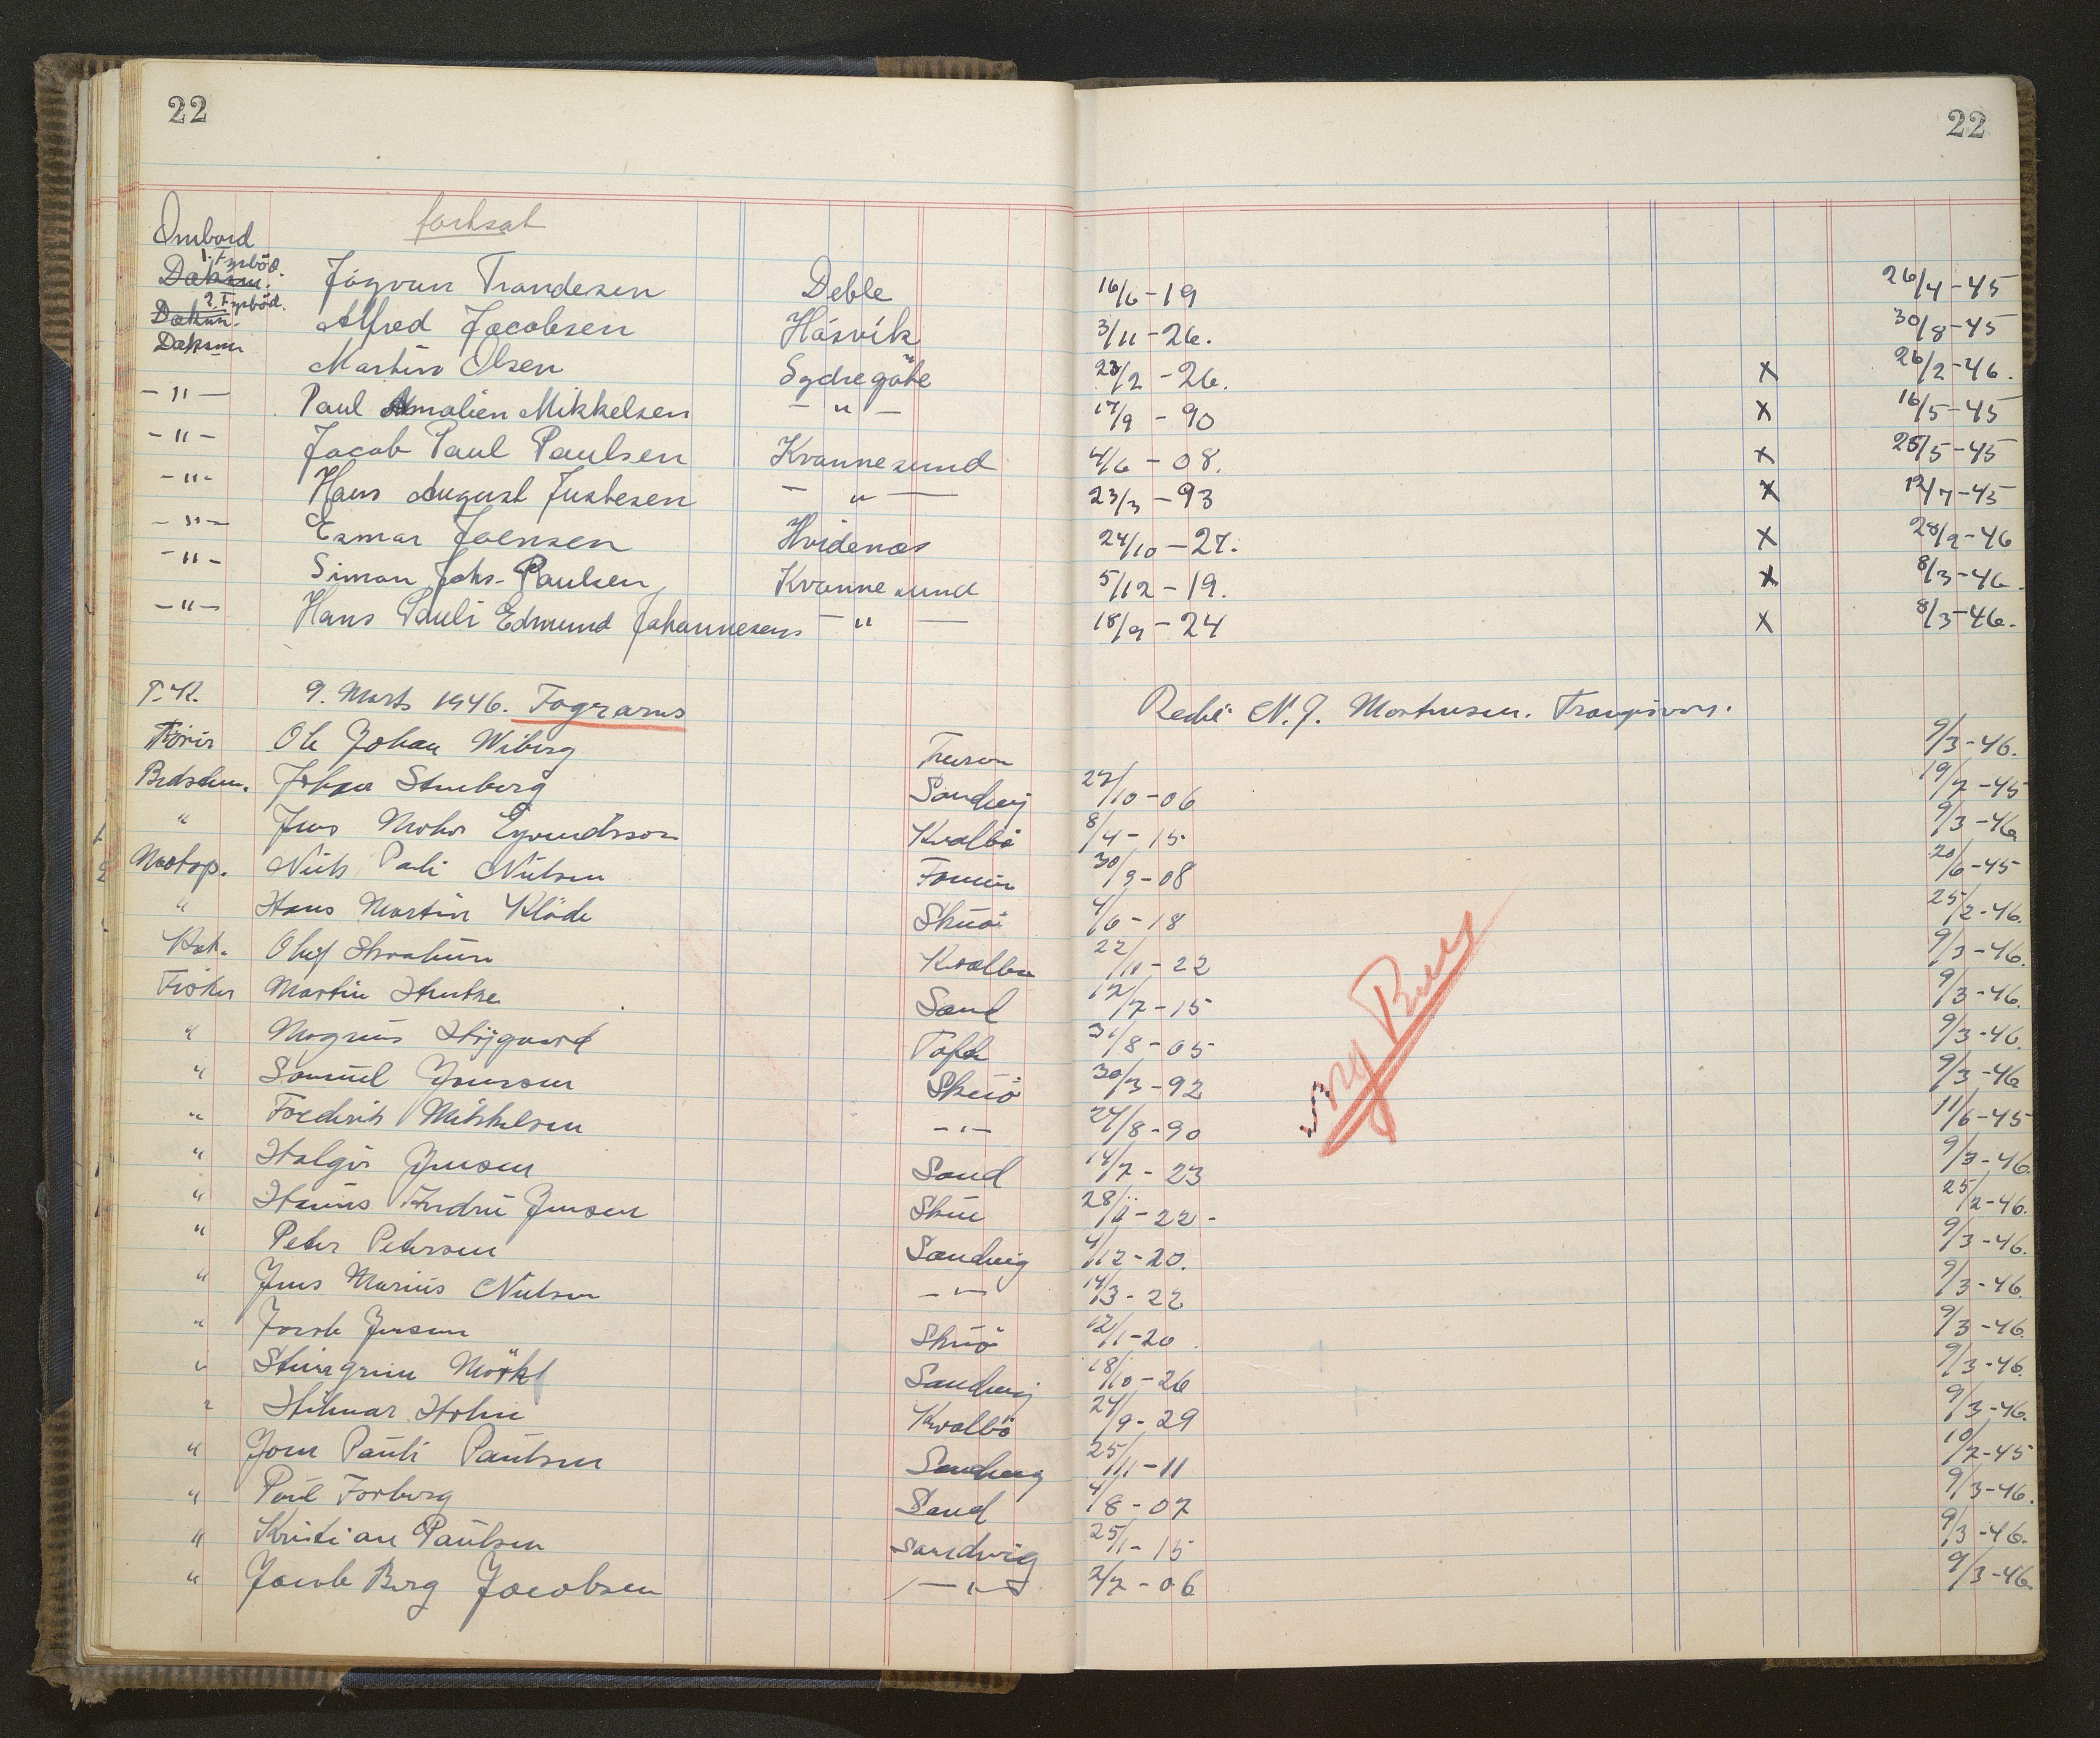 22 22
Ombord fortsat
1. Fyrböd.
Deksm. Jógvan Trandesen Deble 16/6-19 26/4-45
2. Fyrböd.
Deksm. Alfred Jacobsen Hásvík 3/11-26. 30/8-45
Deksm Martin Olsen Sydregöte 23/2-26. X 26/2-46.
-"- Paul Amalien Mikkelsen -"- 17/9-90 X 16/5-45
-"- Jacob Paul Paulsen Kvannesund 4/6-08. X 25/5-45
-"- Hans August Justesen -"- 23/3-93 X 12/7-45
-"- Esmar Joensen Hvidenæs 24/10-27. X 28/2-46
-"- Simon Johs. Paulsen Kvannesund 5/12-19. X 8/3-46.
-"- Hans Pauli Edmund Johannesen -"- 18/9-24 X 8/3-46.
T.K. 9. Marts 1946. Tograrus Rederi N. J. Mortensen. Trangisvaag.
Ole Johan Wiberg 9/3-46.
Bedstem. Johan Stenberg Sandvig 27/10-06 19/7-45
" Jens Mohr Eyvindsson Kvalbö 8/4-15 9/3-46
Niels Pali Nielsen Famien 30/9-08 20/6-45
" Hans Martin Klöde Skuö 4/6-18 25/2-46.
Kok. Oluf Kvalbø 22/11-22 9/3-46.
Fisker Martin Hentze Sand 12/7-15 9/3-46.
" Magnus Höjgaard Toft 31/8-05 9/3-46.
" Samuel Jensen Skuö 30/3-92 9/3-46
" Frederik Mikkelsen -"- 24/8-90 11/6-45
" Halgir Jensen Sand 14/7-23 9/3-46.
" Hans Andrea Jensen Skuö 28/11-22- 25/2-46.
" Peter Petersen Sandvig 4/12-20. 9/3-46.
" Jens Marius Nielsen -"- 14/3-22 9/3-46.
" Jacob Jensen Skuö 12/1-20 9/3-46.
" Steingrim Mörk Sandvig 18/10-26 9/3-46.
" Hilmar Holm Kvalbö 24/9-29 9/3-46.
" Joen Pauli Paulsen Sandvig 25/11-11 10/7-45
" Poul Forberg Sand 4/8-07 9/3-46.
" Kristian Paulsen Sandvig 25/1-15 9/3-46.
" Jacob Berg Jacobsen -"- 2/7-06 9/3-46